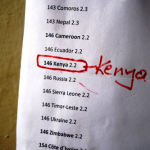 143 Comoros 2.3
143 Nepal 2.3
146 Cameroon 2.2
146 Ecuador 2.2
146 Kenya 2.2 Kenya
146 Russia 2.2
146 Sierra Leone 2.2
146 Timor-Leste 2.2
146 Ukraine 2.2
146 Zimbabwe 2.2
154 Côte d'Ivoire